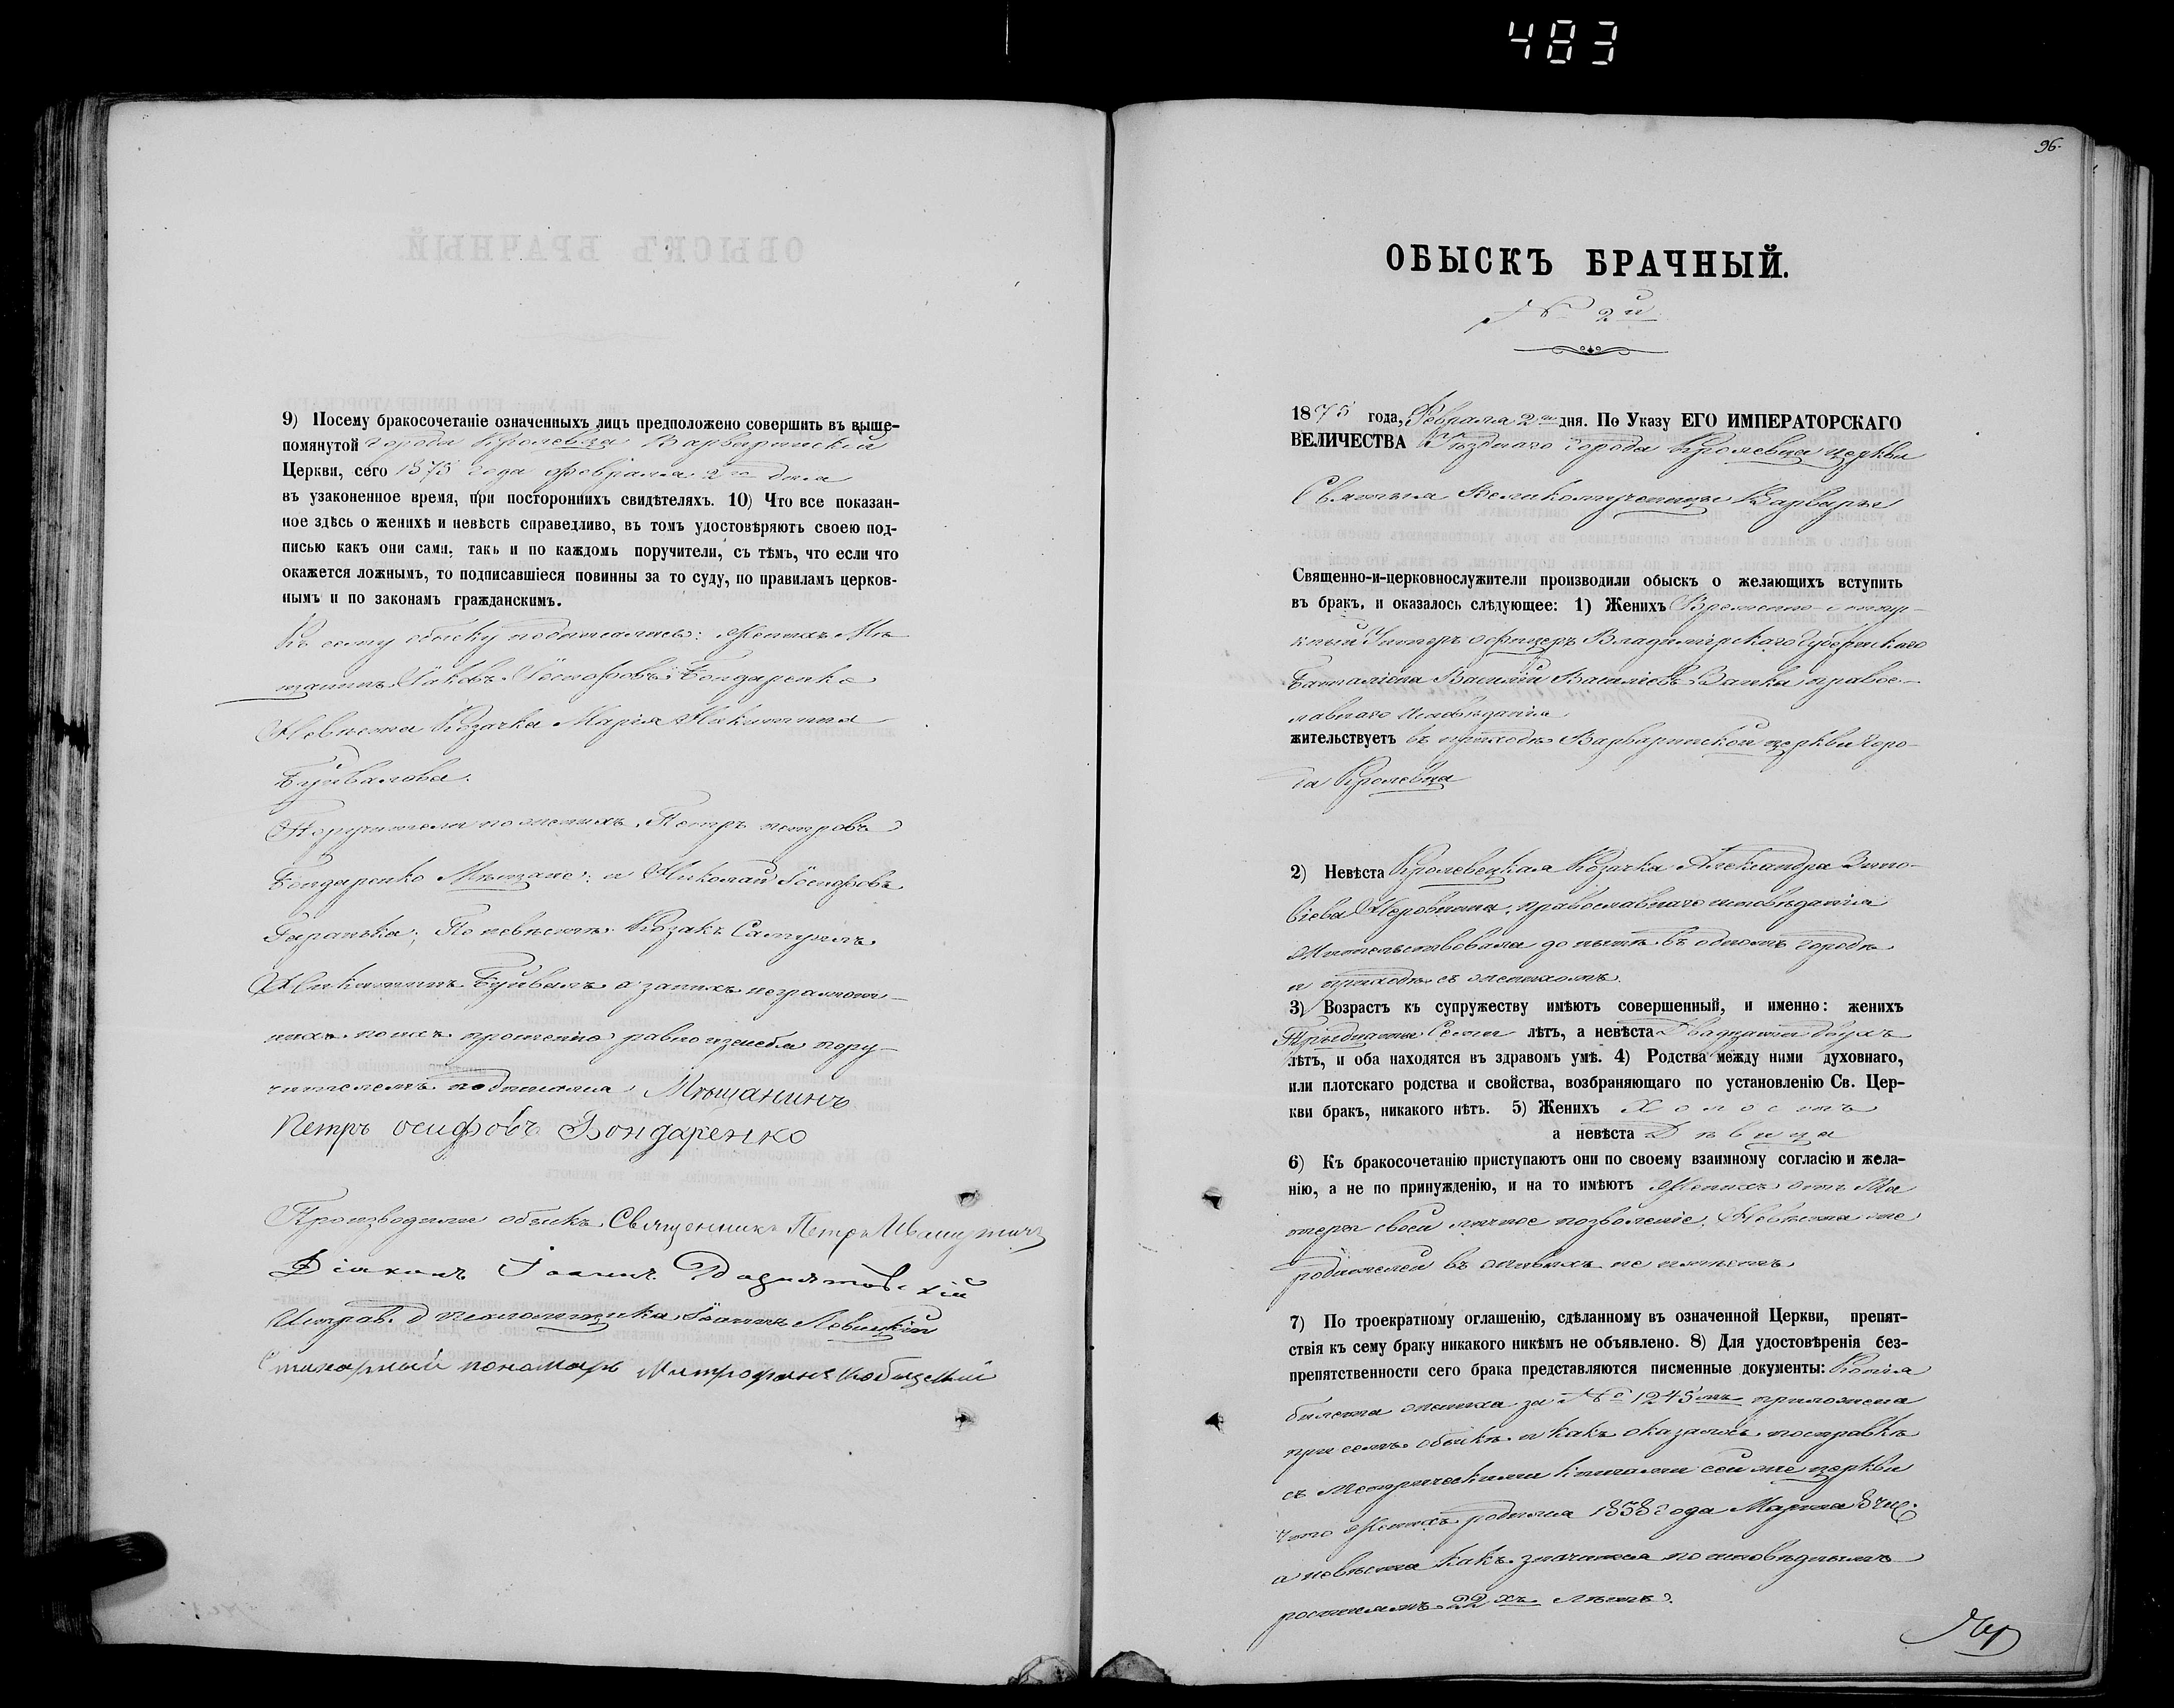 483
9) Посему бракосочетаніе означенныхъ лицъ предположено совершить въ выше-
помянутой города Кролевца Варваринской
Церкви, сего 1875 года Февраля 2го дня
въ узаконенное время, при постороннихъ свидѣтеляхъ. 10) Что все показан-
ное здѣсь о женихѣ и невѣстѣ справедливо, въ томъ удостовѣряютъ своею под-
писью какъ они сами, такъ и по каждомъ поручители, съ тѣмъ, что если что
окажется ложнымъ, то подписавшіеся повинны за то суду, по правиламъ церков-
нымъ и по законамъ гражданскимъ.
Къ сему обыску подписались: Женихъ Мѣ
щанинъ Іаковъ Іосифовъ Бондаренко
Невѣста Козачка Марія Никитина
Буйвалова.
Поручители по женихѣ Петръ петровъ
Бондаренко Мѣщане; и Николай Іосифовъ
По невѣстѣ Козакъ Самуилъ
Никитинъ Буйвалъ а за нихъ неграмот-
ныхъ по ихъ прошенію равно и за себя пору-
чителемъ подписался Мѣщанинъ
Петръ осифовъ Бондаренко
Производили обыскъ Священникъ Петръ
Діаконъ Іоаннъ
Исправ. д псаломщика Іоаннъ Левицкій
Стихарный пономарь Митрофанъ
96.
ОБЫСКЪ БРАЧНЫЙ.
№ 2й
1875 года, Февраля 2го дня. По Указу ЕГО ИМПЕРАТОРСКАГО
ВЕЛИЧЕСТВА Уѣзднаго города Кролевца церкви
Святыя Великомученицы Варвары
Священно-и-церковнослужители производили обыскъ о желающихъ вступить
въ бракъ, и оказалось слѣдующее: 1) Женихъ Временно-отпу-
кный Унтеръ офицеръ Владимірскаго Губернскаго
Баталіона Василій Васильевъ Заика право-
славнаго исповѣданія
жительствуетъ въ приходѣ Варваринской церкви горо-
да Кролевца
2) Невѣста Кролевецкая Козачка Александра Зино-
віева православнаго исповѣданія
Жительствовала до нынѣ въ одномъ городѣ
и приходѣ съ женихомъ.
3) Возрастъ къ супружеству имѣютъ совершенный, и именно: женихъ
Тридцати Семи лѣтъ, а невѣста Двадцати двухъ
лѣтъ, и оба находятся въ здравомъ умѣ. 4) Родства между ними духовнаго,
или плотскаго родства и свойства, возбраняющаго по установленію Св. Цер-
кви бракъ, никакого нѣтъ. 5) Женихъ Холостъ
а невѣста Дѣвица
6) Къ бракосочетанію приступаютъ они по своему взаимному согласію и жела-
нію, а не по принужденію, и на то имѣютъ Женихъ отъ Ма
тери своей личное позволеніе, Невѣста же
родителей въ живыхъ не имѣетъ.
7) По троекратному оглашенію, сдѣланному въ означенной Церкви, препят-
ствія къ сему браку никакого никѣмъ не объявлено. 8) Для удостовѣренія без-
препятственности сего брака представляются писменные документы: Копія
билета жениха за № 1245мъ приложена
при семъ обыскѣ и какъ оказалось по справкѣ
съ Метрическими книгами сей же церкви
что Женихъ родился 1838 года Марта 8 чис.
а невѣста какъ значится по исповѣднымъ
росписямъ 22хъ лѣтъ.